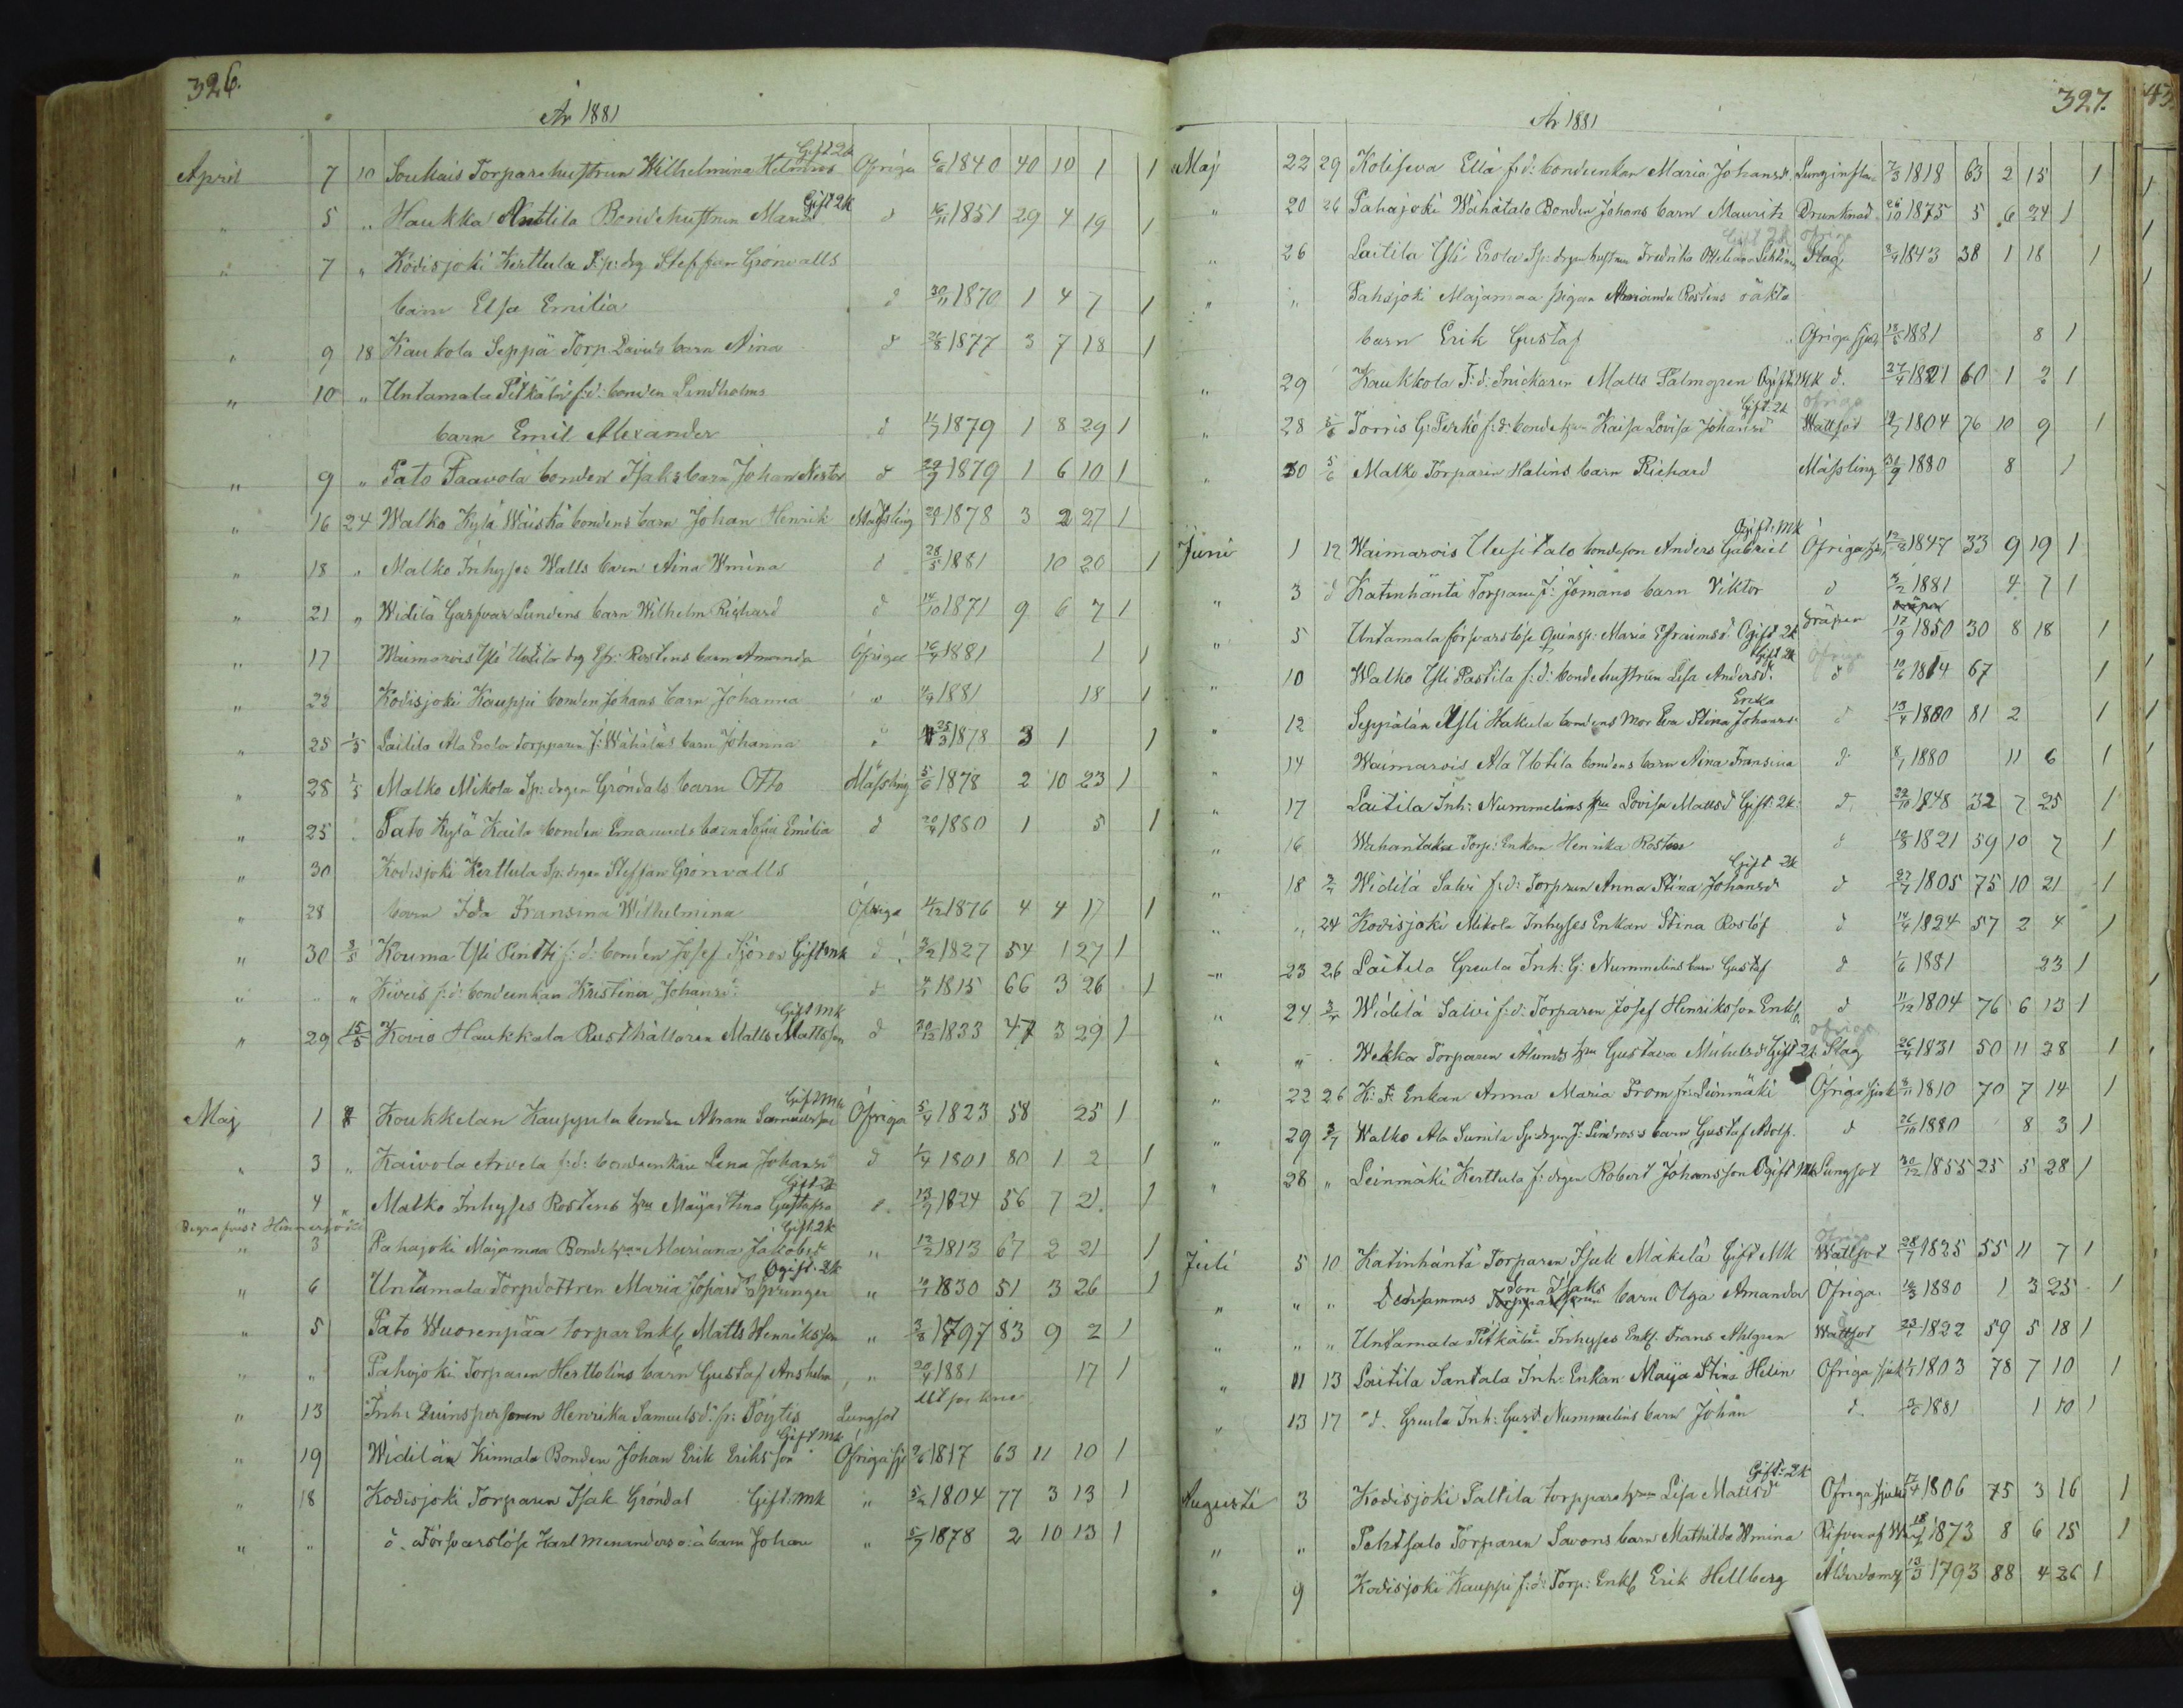 326.
År 1881
Gift 2k
April 7 10 Soukais Torparehustrun Wilhelmina Helenius Öfriga 6/6 1840 40 10 1 1
Gift 2k
" 5 " Haukka Anttila Bondehustrun Maria d 16/11 1851 29 4 19 1
" 7 " Kodisjoki Kerttula Sp: drg Steffan Grönvalls
barn Elsa Emilia d 30/11 1870 1 4 7 1
" 9 18 Kaukola Seppä Torp Davids barn Aina d 21/8 1877 3 7 18 1
" 10 " Untamala Pitkäläs f:d: bonden Lindholms
barn Emil Alexander d 11/7 1879 1 8 29 1
" 9 " Pato Paavola bonden Isaks barn Johan Nestor d 29/9 1879 1 6 10 1
" 16 24 Walko Kylä Wäiskä bondens barn Johan Henrik Mässling 20/1 1878 3 2 27 1
" 18 " Malko Inhyses Walls barn Aina Wmina d 28/5 1881 10 20 1
" 21 " Widilä Garfvar Lundens barn Wilhelm Richard d 14/10 1871 9 6 7 1
" 17 Waimarois Ysti Uotila drg Efr: Rostens barn Amanda Öfriga 16/4 1881 1 1
" 22 Kodisjoki Kauppi bonden Johans barn Johanna " 4/4 1881 18 1
" 25 1/5 Laitila Ala Erola torpparen J: Wähätus barn Johanna " 25/3 1878 3 1 1
" 28 1/5 Malko Mikola Sp: drgen Gröndals barn Otto Mässling 5/6 1878 2 10 23 1
" 25 " Pato Kylä Kaila bonden Emanuels barn Sofia Emilia d 20/4 1880 1 5 1
" 30 Kodisjoki Kerttula Sp: drgen Steffan Grönvalls
" 28 barn Ida Fransina Wilhelmina Öfriga 11/12 1876 4 4 17 1
" 30 8/5 Kouma Ysti Pintti f:d: bonden Josef Sjöros Gift mk d 3/2 1827 54 1 27 1
" " " Kiveis f:d: bondeenkan Kristina Johansd: d 4/1 1815 66 3 26 1
Gift mk
" 29 15/5 Kovio Haukkala Rusthållaren Matts Mattsson d 30/12 1833 47 3 29 1
Gift Mk
Maj 1 8 Koukkelan Kauppila bonden Abram Samuelsson Öfriga 5/4 1823 58 25 1
" 3 " Kaivola Arvela f:d: bondeenkan Lena Johansd d 1/4 1801 80 1 2 1
Gift 2k
" 4 " Malko Inhyses Rostens hru Maija Stina Gustafsd d. 13/9 1824 56 7 21 1
Begrafvas i Hinnerjoki
Gift. 2k
" 3 Pahojoki Majamaa Bondehrun Mariana Jakobsd " 12/2 1813 67 2 21 1
Ogift. 2k
" 6 Untamala Torpdottren Maria Josefsd: Springer " 10/1 1830 51 3 26 1
" 5 Pato Wuorenpää torpar Enkl. Matts Henriksson " 3/8 1797 83 9 2 1
" " Pahojoki Torparen Herttolins barn Gustaf Anshelm " 20/4 1881 17 1
" 13 Inh: Qvinspersonen Henrika Samuelsd: fr: Pöytis Lungsot
Gift mk
" 19 Widilän Kinnala Bonden Johan Erik Eriksson Öfriga sj: 9/6 1817 63 11 10 1
" 18 Kodisjoki Torparen Isak Gröndal Gift: mk " 5/2 1804 77 3 13 1
" " d. Försvarslöse Karl Menanders o:ä barn Johan " 5/7 1878 2 10 13 1
327.
År 1881
Maj 22 29 Kolisewa Ellä f:d: bondeenkan Maria Johansd: Lunginfla. 7/3 1818 63 2 15 1
" 20 26 Pahajoki Wähätalo Bonden Johans barn Mauritz Drunknad 26/10 1875 5 6 24 1
Gift 2k öfriga
" 26 Laitila Ysti Erola Sp: drgen hustrun Fredrika Ottiliana Lehtinen Slag 8/4 1843 38 1 18 1
" " Pahojoki Majamaa pigan Amanda Rostens oäkta
barn Erik Gustaf Öfriga sjukd 18/5 1881 8 1
" 29 Kaukkola F:d: Snickaren Matts Palmgren Ogift mk d. 27/4 1821 60 1 2 1
Gift: 2k öfriga
" 28 5/6 Torris G: Perko f:d: bondehrun Kaisa Lovisa Johansd Wattsot 19/7 1804 76 10 9 1
" 30 5/6 Malko Torparen Halins barn Richard Mässling 30/9 1880 8 1
Ogift: mk
Juni 1 12 Waimarois Uusitalo bondeson Anders Gabriel Öfriga sju 12/8 1847 33 9 19 1
" 3 d Katinhäntä Torparen J: Jomans barn Viktor d 2/2 1881 4 7 1
" 5 Untamala försvarslöse qvinsp: Maria Efraimsd: Ogift 2k 17/9 1850 30 8 18 1
Gift 2k Öfriga
" 10 Walko Ysti Pastila f:d: bondehustrun Lisa Andersd. d 10/6 1814 67 1
Erika
" 12 Seppälän Ysti Hakula bondens mor Eva Stina Johansd: d 13/4 1800 81 2 1
" 14 Waimarois Ala Uotila bondens barn Aina Fransina d 8/7 1880 11 6 1
" 17 Laitila Inh: Nummelins hru Lovisa Mattsd Gift: 2k. d 22/10 1848 32 7 25 1
" 16 Wahantaka Torp: Enkan Henrika Rosten d 10/8 1821 59 10 7 1
Gift 2k
" 18 3/7 Widilä Salvi f:d: Torpparen Anna Stina Johansd: d 27/7 1805 75 10 21 1
" " 24 Kodisjoki Mikola Inhyses Enkan Stina Roslöf d 14/4 1824 57 2 4 1
" 23 26 Laitila Greula Inh: G: Nummelins barn Gustaf d 1/6 1881 23 1
" 24 3/7 Widilä Salvi f:d: Torparen Josef Henriksson Enkl. d 11/12 1804 76 6 13 1
öfriga
" " Wekka Torparen Alunds hru Gustava Mickelsd: Gift 2k Slag 26/4 1831 50 11 28 1
" 22 26 H: F. Enkan Anna Maria From fr: Leinmäki Öfriga sjuk 8/11 1810 70 7 14 1
" 29 3/7 Walko Ala Sunila Sp: drgen J: Lindros's barn Gustaf Adolf. d 26/10 1880 8 3 1
" 28 " Leinmäki Kerttula f: drgen Robert Johansson Ogift Mk Lungsot 30/12 1855 25 5 28 1
Öfriga
Juli 5 10 Katinhäntä Torparen Isak Mäkelä Gift Mk Wattsot 28/7 1825 55 11 7 1
son Isaks
" " " Densammes barn Olga Amanda Öfriga. 10/3 1880 1 3 25 1
" " " Untamala Pitkälä Inhyses Enkl. Frans Ahlgren Wattsot 23/1 1822 59 5 18 1
" 11 13 Laitila Santala Inh: Enkan Maija Stina Helin Öfriga sjuk 1/1 1803 78 7 10 1
" 13 17 d. Greula Inh: Gust Nummelins barn Johan d. 3/6 1881 1 10 1
Gift: 2k
Augusti 3 Kodisjoki Paltila torpparehrun Lisa Mattsd Öfriga sjukd 17/4 1806 75 3 16 1
" " Pehtsalo Torparen Savons barn Mathilda Wmina 18/1 1873 8 6 15 1
" 9 Kodisjoki Kauppi f:d: Torp: Enkl. Erik Hellberg Ålderdoms 13/3 1793 88 4 26 1